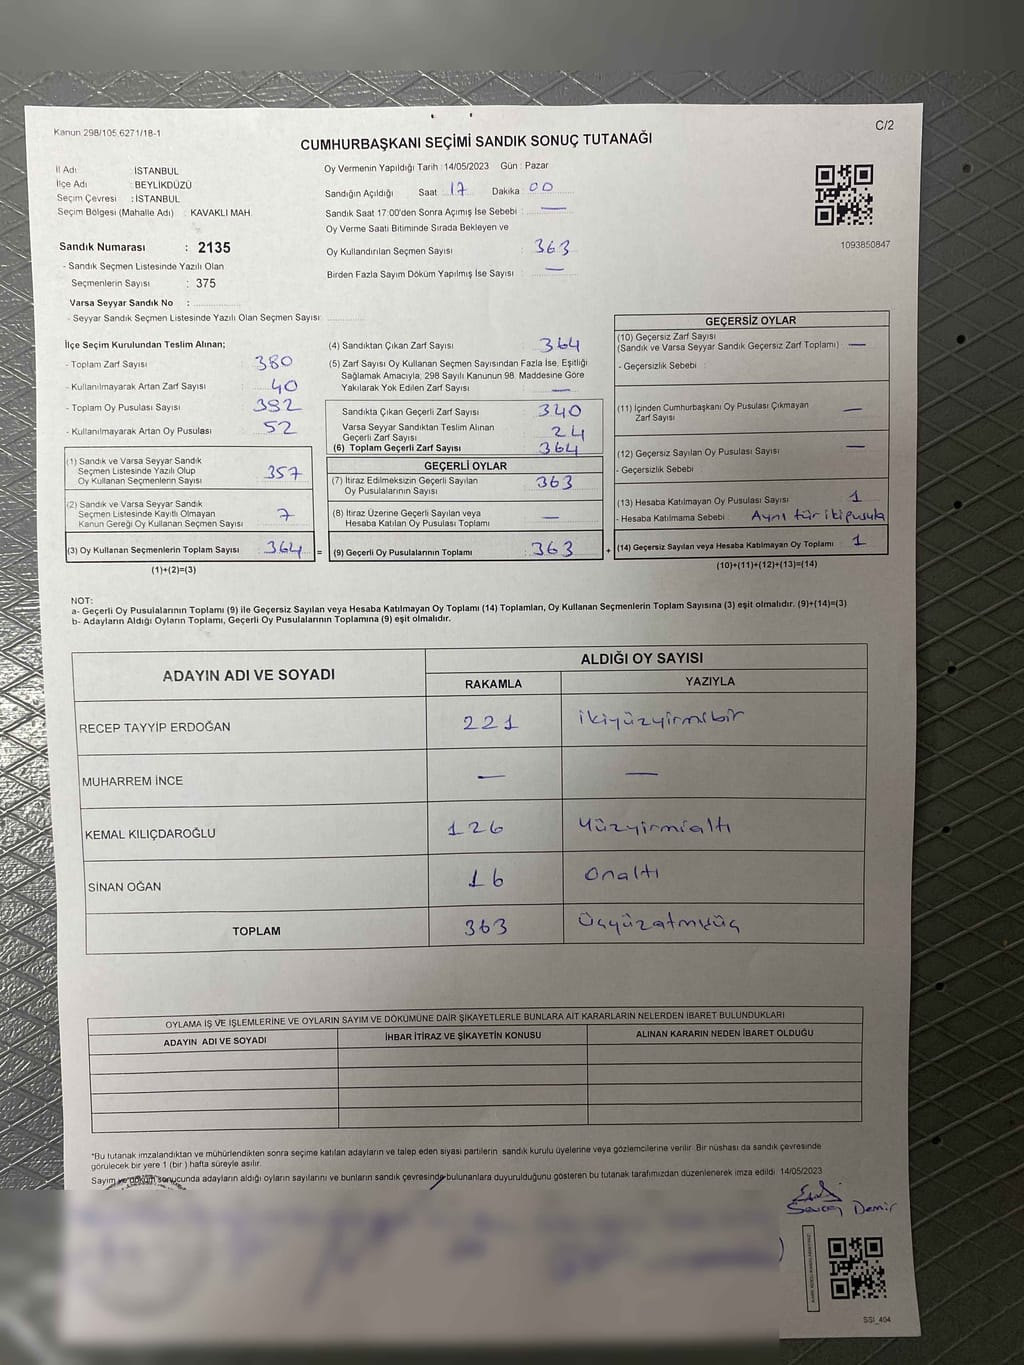 Kanun 298/105,6271/18-1
C/2
CUMHURBAŞKANI SEÇİMİ SANDIK SONUÇ TUTANAĞI
İl Adı : İSTANBUL
İlçe Adı : BEYLİKDÜZÜ
Seçim Çevresi : İSTANBUL
Seçim Bölgesi (Mahalle Adı) : KAVAKLI MAH.
Sandık Numarası : 2135
- Sandık Seçmen Listesinde Yazılı Olan
Seçmenlerin Sayısı : 375
Varsa Seyyar Sandık No :
- Seyyar Sandık Seçmen Listesinde Yazılı Olan Seçmen Sayısı:
Oy Vermenin Yapıldığı Tarih : 14/05/2023 Gün : Pazar
Sandığın Açıldığı Saat 17 Dakika 00
Sandık Saat 17:00'den Sonra Açımış İse Sebebi : —
Oy Verme Saati Bitiminde Sırada Bekleyen ve
Oy Kullandırılan Seçmen Sayısı : 363
Birden Fazla Sayım Döküm Yapılmış İse Sayısı : —
1093850847
İlçe Seçim Kurulundan Teslim Alınan;
- Toplam Zarf Sayısı : 380
- Kullanılmayarak Artan Zarf Sayısı : 40
- Toplam Oy Pusulası Sayısı : 392
- Kullanılmayarak Artan Oy Pusulası : 52
(1) Sandık ve Varsa Seyyar Sandık
Seçmen Listesinde Yazılı Olup
Oy Kullanan Seçmenlerin Sayısı : 357
(2) Sandık ve Varsa Seyyar Sandık
Seçmen Listesinde Kayıtlı Olmayan
Kanun Gereği Oy Kullanan Seçmen Sayısı : 7
(3) Oy Kullanan Seçmenlerin Toplam Sayısı : 364 =
(1)+(2)=(3)
(4) Sandıktan Çıkan Zarf Sayısı : 364
(5) Zarf Sayısı Oy Kullanan Seçmen Sayısından Fazla İse, Eşitliği
Sağlamak Amacıyla, 298 Sayılı Kanunun 98. Maddesine Göre
Yakılarak Yok Edilen Zarf Sayısı : —
Sandıkta Çıkan Geçerli Zarf Sayısı : 340
Varsa Seyyar Sandıktan Teslim Alınan
Geçerli Zarf Sayısı : 24
(6) Toplam Geçerli Zarf Sayısı : 364
GEÇERLİ OYLAR
(7) İtiraz Edilmeksizin Geçerli Sayılan
Oy Pusulalarının Sayısı : 363
(8) İtiraz Üzerine Geçerli Sayılan veya
Hesaba Katılan Oy Pusulası Toplamı : —
(9) Geçerli Oy Pusulalarının Toplamı : 363 +
GEÇERSİZ OYLAR
(10) Geçersiz Zarf Sayısı
(Sandık ve Varsa Seyyar Sandık Geçersiz Zarf Toplamı) : —
- Geçersizlik Sebebi :
(11) İçinden Cumhurbaşkanı Oy Pusulası Çıkmayan
Zarf Sayısı : —
(12) Geçersiz Sayılan Oy Pusulası Sayısı : —
- Geçersizlik Sebebi :
(13) Hesaba Katılmayan Oy Pusulası Sayısı : 1
- Hesaba Katılmama Sebebi : Aynı tür iki pusula
(14) Geçersiz Sayılan veya Hesaba Katılmayan Oy Toplamı : 1
(10)+(11)+(12)+(13)=(14)
NOT:
a- Geçerli Oy Pusulalarının Toplamı (9) ile Geçersiz Sayılan veya Hesaba Katılmayan Oy Toplamı (14) Toplamları, Oy Kullanan Seçmenlerin Toplam Sayısına (3) eşit olmalıdır. (9)+(14)=(3)
b- Adayların Aldığı Oyların Toplamı, Geçerli Oy Pusulalarının Toplamına (9) eşit olmalıdır.
ADAYIN ADI VE SOYADI
ALDIĞI OY SAYISI
RAKAMLA YAZIYLA
RECEP TAYYİP ERDOĞAN 221 ikiyüzyirmibir
MUHARREM İNCE — —
KEMAL KILIÇDAROĞLU 126 Yüzyirmialtı
SİNAN OĞAN 16 Onaltı
TOPLAM 363 Üçyüzatmışüç
OYLAMA İŞ VE İŞLEMLERİNE VE OYLARIN SAYIM VE DÖKÜMÜNE DAİR ŞİKAYETLERLE BUNLARA AİT KARARLARIN NELERDEN İBARET BULUNDUKLARI
ADAYIN ADI VE SOYADI İHBAR İTİRAZ VE ŞİKAYETİN KONUSU ALINAN KARARIN NEDEN İBARET OLDUĞU
*Bu tutanak imzalandıktan ve mühürlendikten sonra seçime katılan adayların ve talep eden siyasi partilerin sandık kurulu üyelerine veya gözlemcilerine verilir. Bir nüshası da sandık çevresinde
görülecek bir yere 1 (bir) hafta süreyle asılır.
Sayım ve döküm sonucunda adayların aldığı oyların sayılarını ve bunların sandık çevresinde bulunanlara duyurulduğunu gösteren bu tutanak tarafımızdan düzenlenerek imza edildi. 14/05/2023
Demir
SSI_404